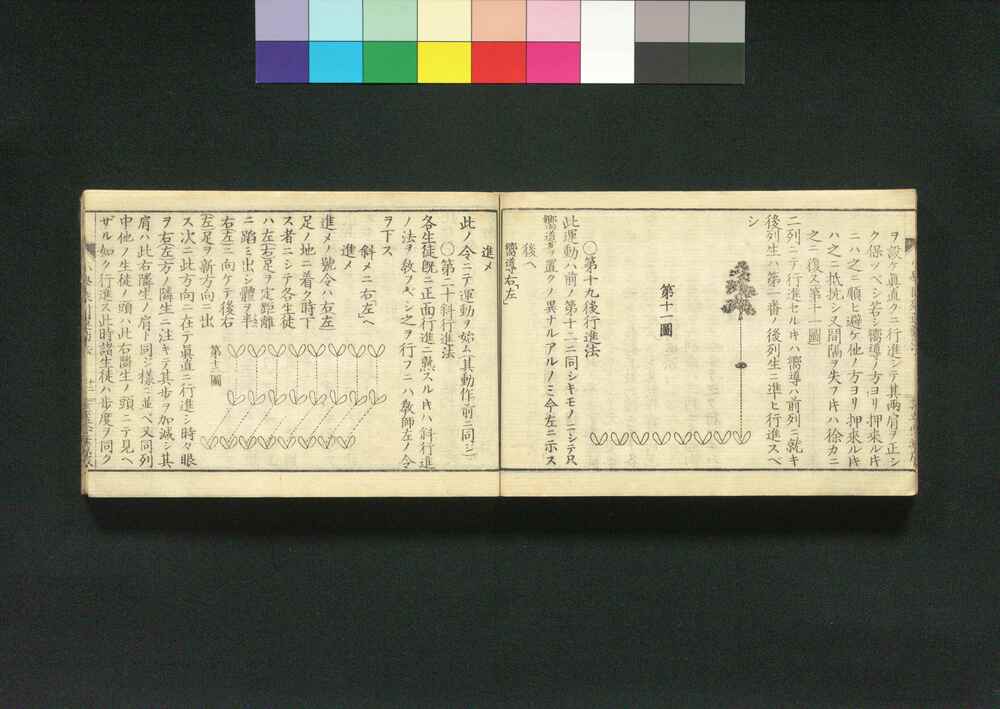 ヲ設ケ眞直クニ行進シテ其兩肩ヲ正シ
ク保ツベシ若シ嚮導ノ方ヨリ押來ルキ
ニハ之ニ順ヒ避ケ他ノ方ヨリ押來ルキ
ハ之ニ抵抗シ又間隔ヲ失フキハ徐カニ
之ニ復ス第十一圖
二列ニテ行進セルキハ嚮導ハ前列ニ就キ
後列生ハ第一番ノ後列生ニ準ヒ行進スベ
シ
第十一圖
〇第十九後行進法
此運動ハ前ノ第十二ニ同シキモノニシテ只
嚮導ヲ置クノ異ナルアルノミ今左ニ示ス
後ヘ
嚮導右「左」
進メ
此ノ令ニテ運動ヲ始ム其動作前ニ同ジ
〇第二十斜行進法
各生徒既ニ正面行進ニ熟スルキハ斜行進
ノ法ヲ敎ノベシ之ヲ行フニハ敎師左ノ令
ヲ下ス
斜メニ右「左」ヘ
進メ
進メノ號令ハ右「左」
足ノ地ニ着ク時下
ス者ニシテ各生徒
ハ左「右」足ヲ定距離
ニ踏ミ出シ體ヲ半
右「左」ニ向ケテ後右
「左」足ヲ新方向ニ出
ス次ニ此方向ニ在テ眞直ニ行進シ時々眼
ヲ右「左」方ノ隣生ニ注キテ其歩ヲ加減シ其
肩ハ此右隣生ノ肩ト同シ樣ニ並ベ又同列
中他ノ生徒ノ頭ハ此右隣生ノ頭ニテ見ヘ
ザル如ク行進ス此時諸生徒ハ歩度ヲ同ク
第十二圖